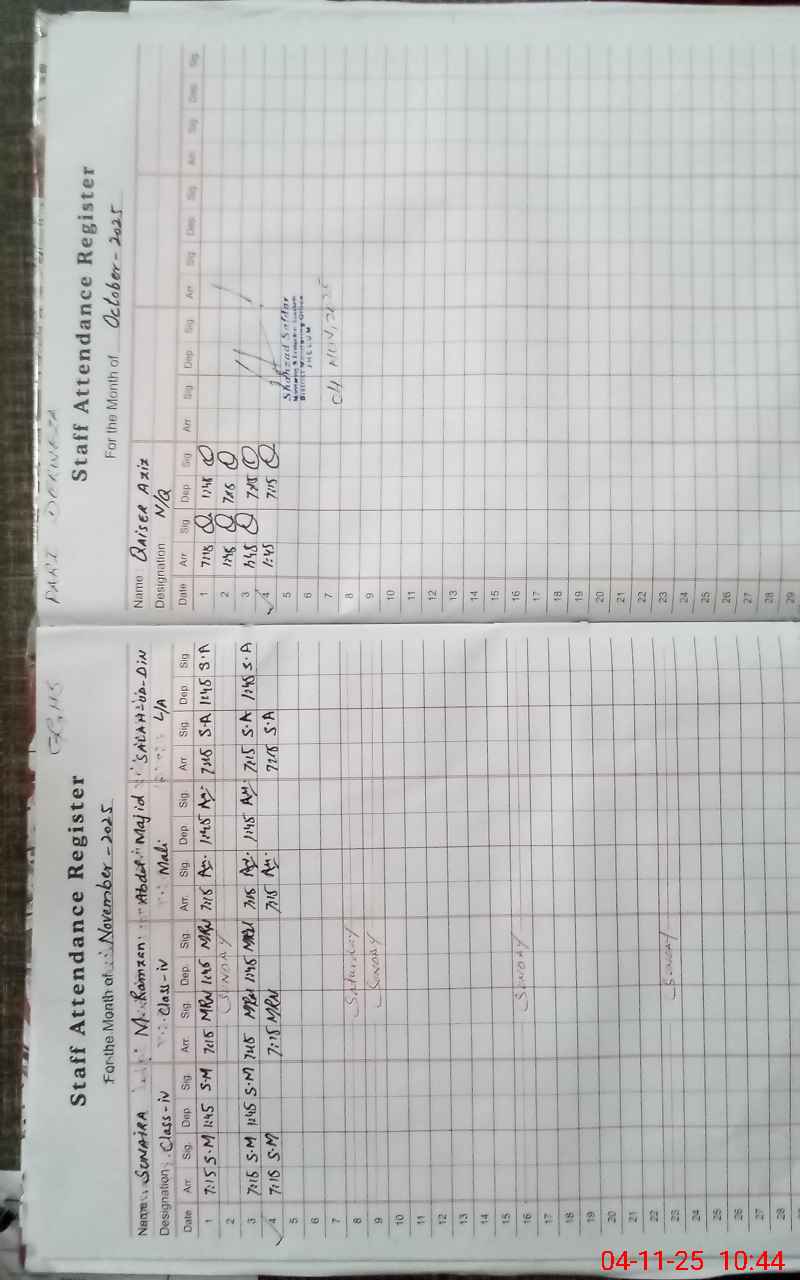 Staff Attendance Register
For the Month of November - 2025
Name SUNAIRA M. Ramzan Abdul Majid SALAH-UD-DIN
Designation Class-iv Class-iv Mali L/A
Date Arr. Sig. Dep. Sig. Arr. Sig. Dep. Sig. Arr. Sig. Dep. Sig. Arr. Sig. Dep Sig.
1 7:15 S.M 1:45 S.M 7:15 MRW 1:45 MRW 7:15 1:45 7:15 S.A 1:45 S.A
2 SUNDAY
3 7:15 S.M 1:45 S.M 7:15 MRW 1:45 MRW 7:15 1:45 7:15 S.A 1:45 S.A
4 7:15 S.M 7:15 MRW 7:15 7:15 S.A
5
6
7
8 Saturday
9 Sunday
10
11
12
13
14
15
16 Sunday
17
18
19
20
21
22
23 Sunday
24
25
26
27
28
Staff Attendance Register
For the Month of October - 2025
Name QAISER AZIZ
Designation N/Q
Date Arr Sig Dep Sig Arr Sig Dep Sig Arr Sig Dep Sig Arr Sig Dep Sig
1 7:15 1:45
2 1:45 7:15
3 1:45 7:15
4 1:45 7:15
5
6
7
8
9
10
11
12
13
14
15
16
17
18
19
20
21
22
23
24
25
26
27
28
29
Shahzad Safdar
JHELUM
04 NOV, 2025
04-11-25 10:44